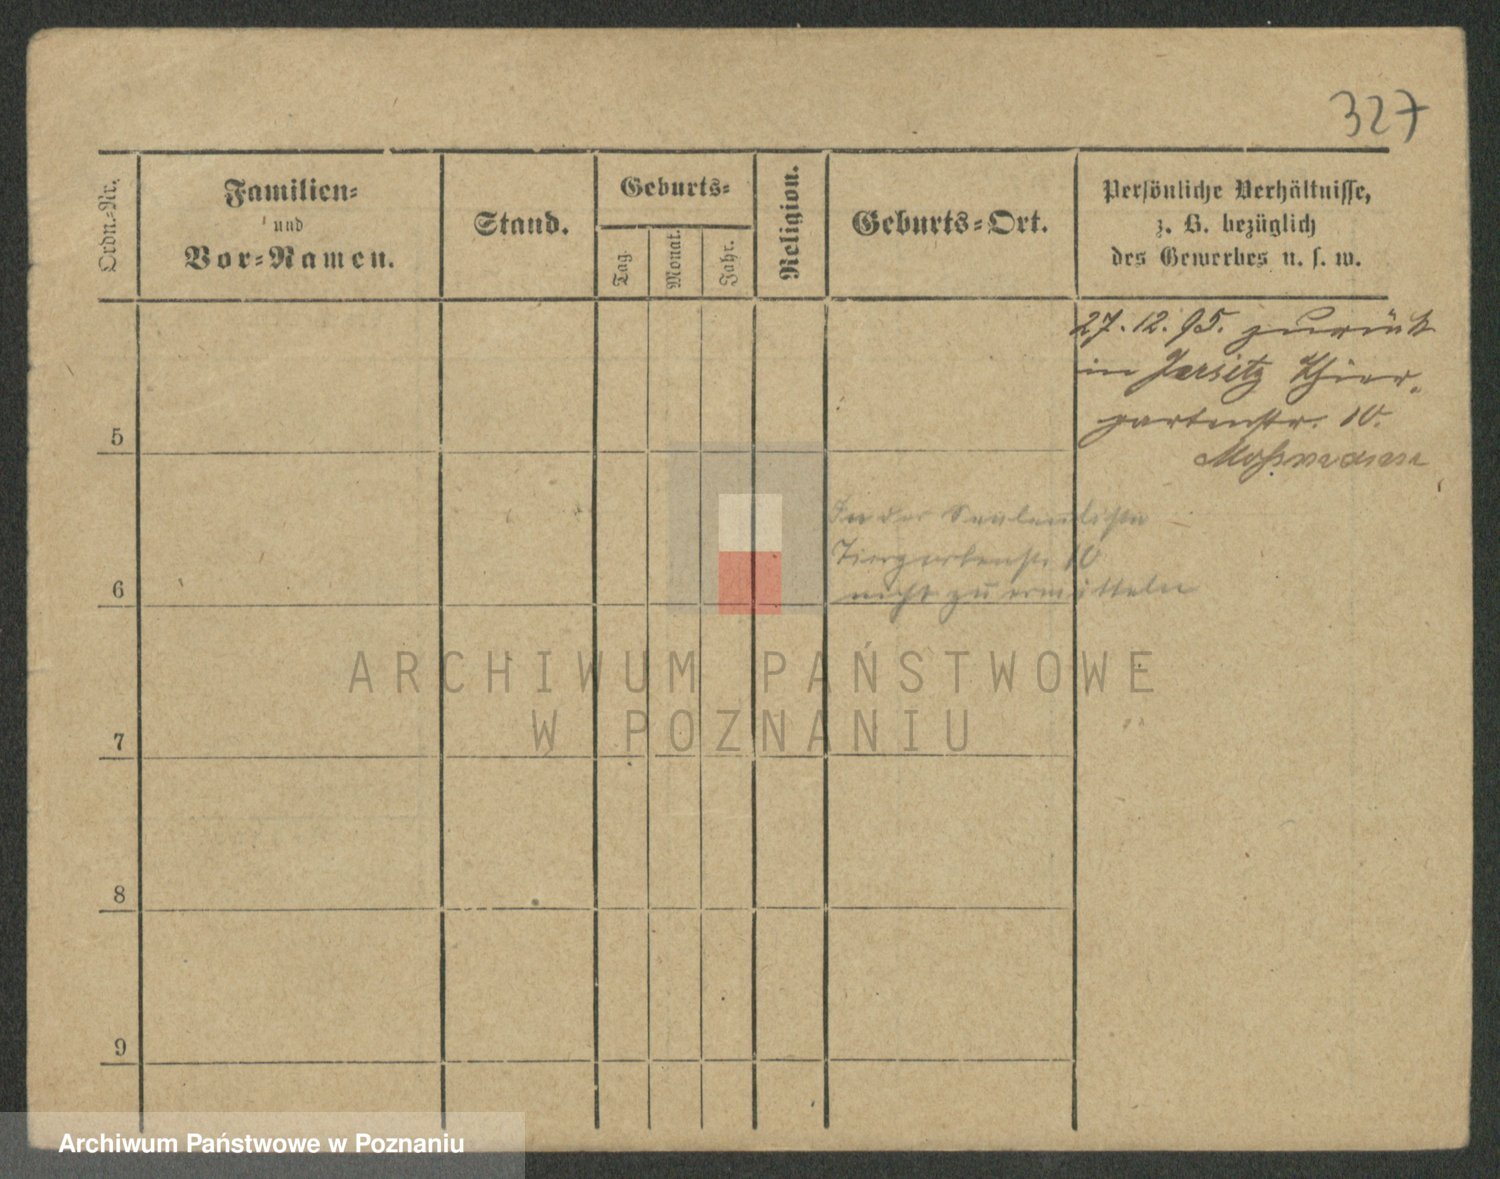 327
Ordn.-Nr.
Familien-
und
Vor-Namen.
Stand.
Geburts-
Tag.
Monat.
Jahr.
Religion.
Geburts-Ort.
Persönliche Verhältnisse,
z. B. bezüglich
des Gewerbes u. s. w.
27.12.95. zurück
in Jersitz Thier-
gartenstr. 10.
5
In der
Tiergartenstr 10
6
nicht zu ermitteln
ARCHIWUM PAŃSTWOWE
W POZNANIU
7
8
9
Archiwum Państwowe w Poznaniu